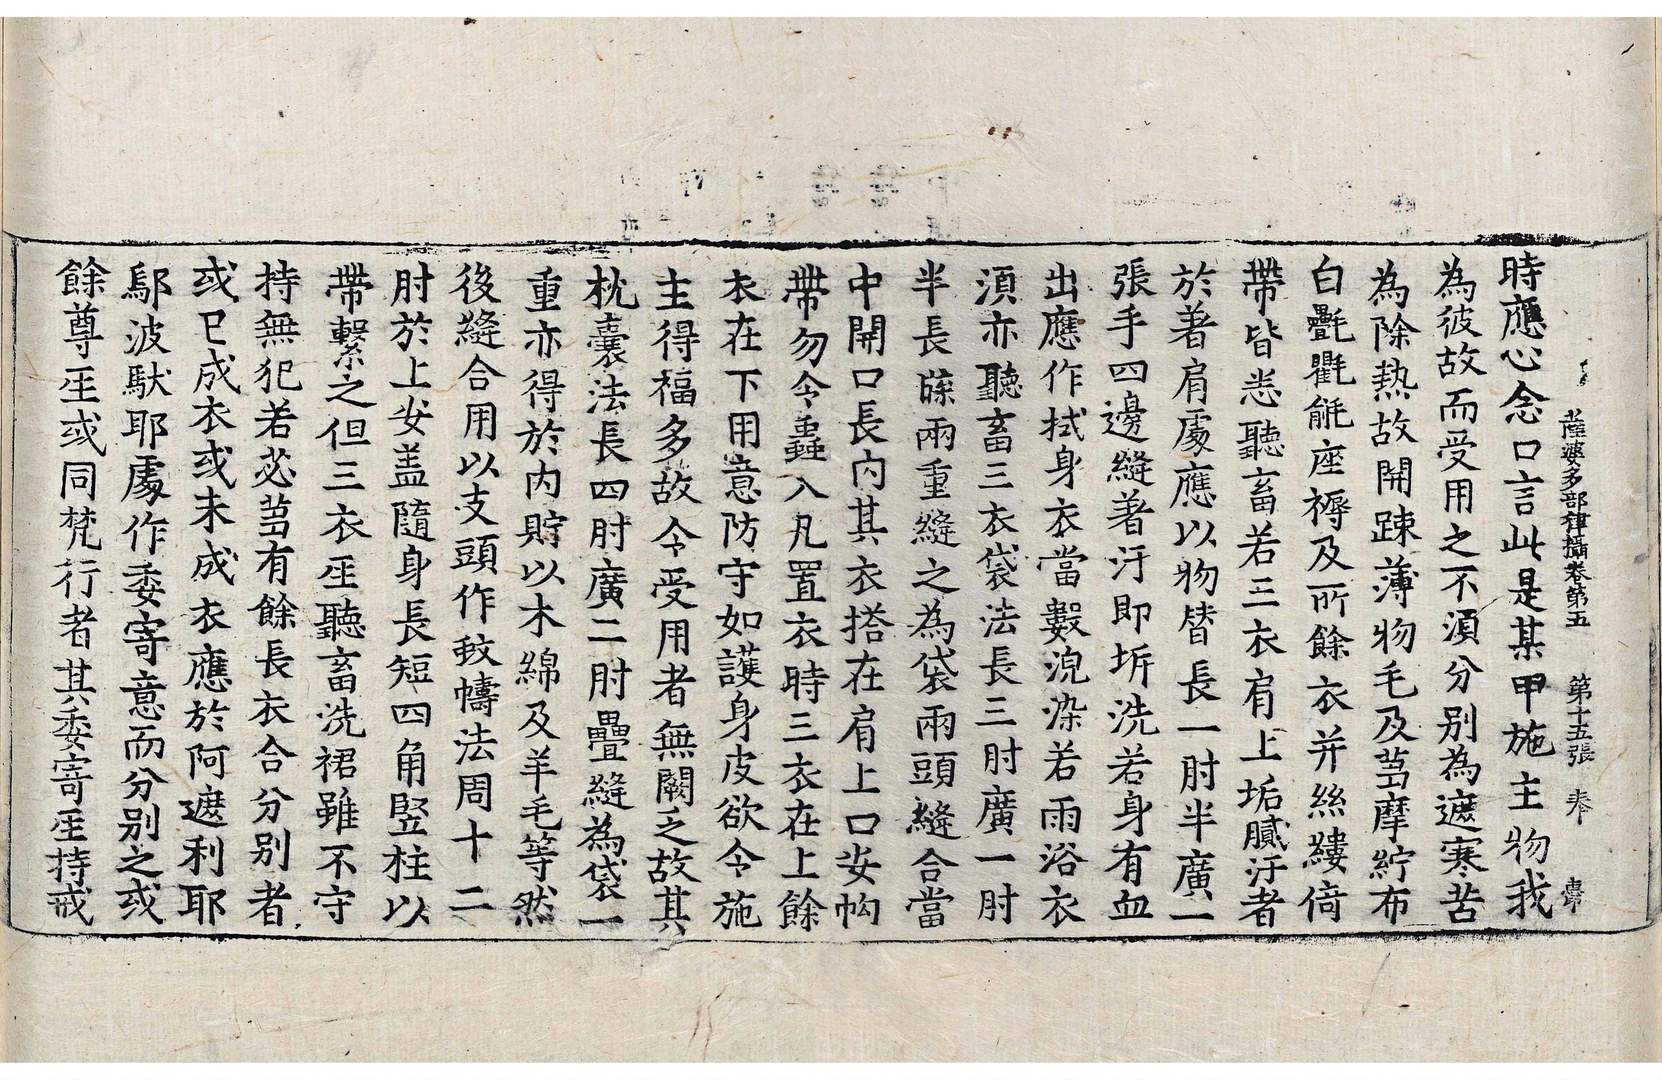 薩婆多部律攝卷第五　第十五張
時應心念口言此是某甲施主物我
為彼故而受用之不須分別為遮寒苦
為除熱故開踈薄物毛及芻摩紵布
白㲲氍毹座褥及所餘衣并絲縷倚
帶皆悉聽畜若三衣肩上垢膩汙者
於著肩處應以物替長一肘半廣一
張手四邊縫著汙即坼洗若身有血
出應作拭身衣當數浣染若雨浴衣
須亦聽畜三衣袋法長三肘廣一肘
半長牒兩重縫之為袋兩頭縫合當
中開口長內其衣搭在肩上口安㡇
帶勿令蟲入凡置衣時三衣在上餘
衣在下用意防守如護身皮欲令施
主得福多故令受用者無闕乏故其
枕囊法長四肘廣二肘疊縫為袋一
重亦得於內貯以木綿及羊毛等然
後縫合用以支頭作蚊幬法周十二
肘於上安盖隨身長短四角竪柱以
帶繫之但三衣𤯔聽畜洗裙雖不守
持無犯若苾芻有餘長衣合分別者
或已成衣或未成衣應於阿遮利耶
鄔波馱耶處作委寄意而分別之或
餘尊𤯔或同梵行者其委寄𤯔持戒